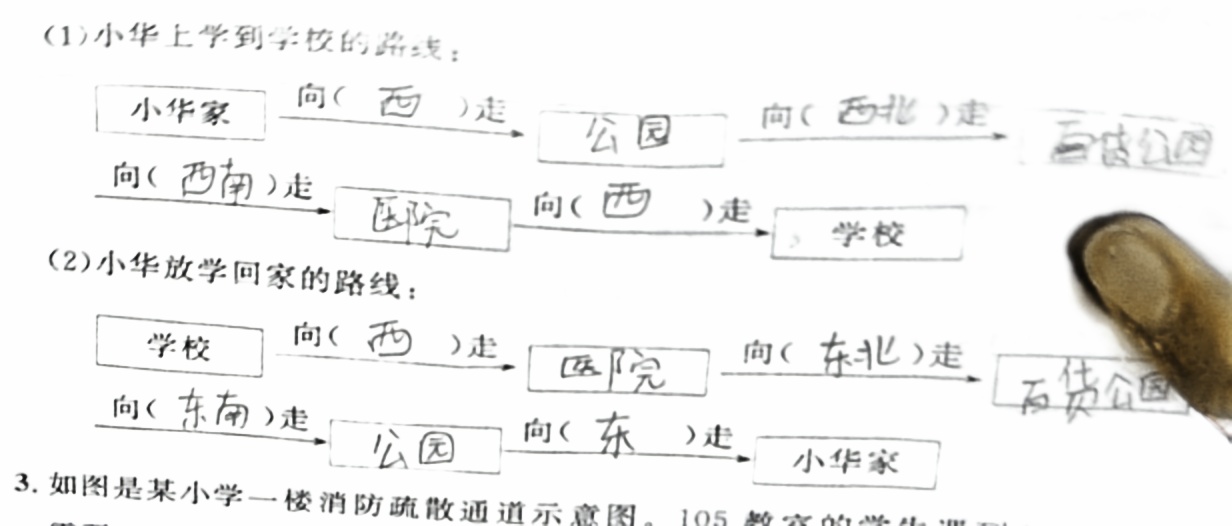 (1)小华上学到学校的路线：
小华家 向( 西 )走 公园 向( 西北 )走 百货公园
向( 西南 )走 医院 向( 西 )走 学校
(2)小华放学回家的路线：
学校 向( 西 )走 医院 向( 东北 )走 百货公园
向( 东南 )走 公园 向( 东 )走 小华家
3. 如图是某小学一楼消防疏散通道示意图。105 教室的学生